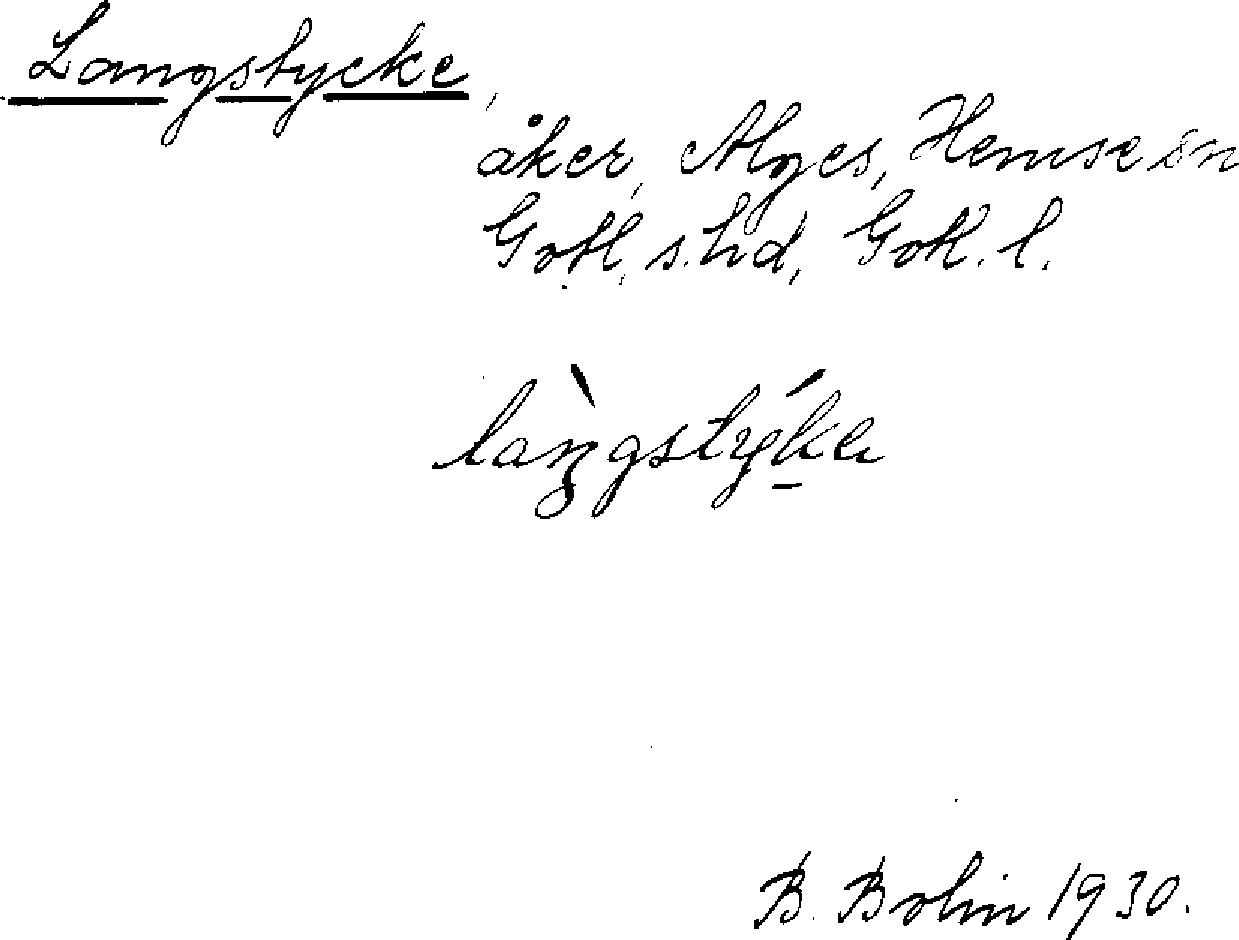 Langstycke,
åker, Alges, Hemse sn
Gotl. s. hd, Gotl. l.
làŋgstýkɐ
B. Bolin 1930.